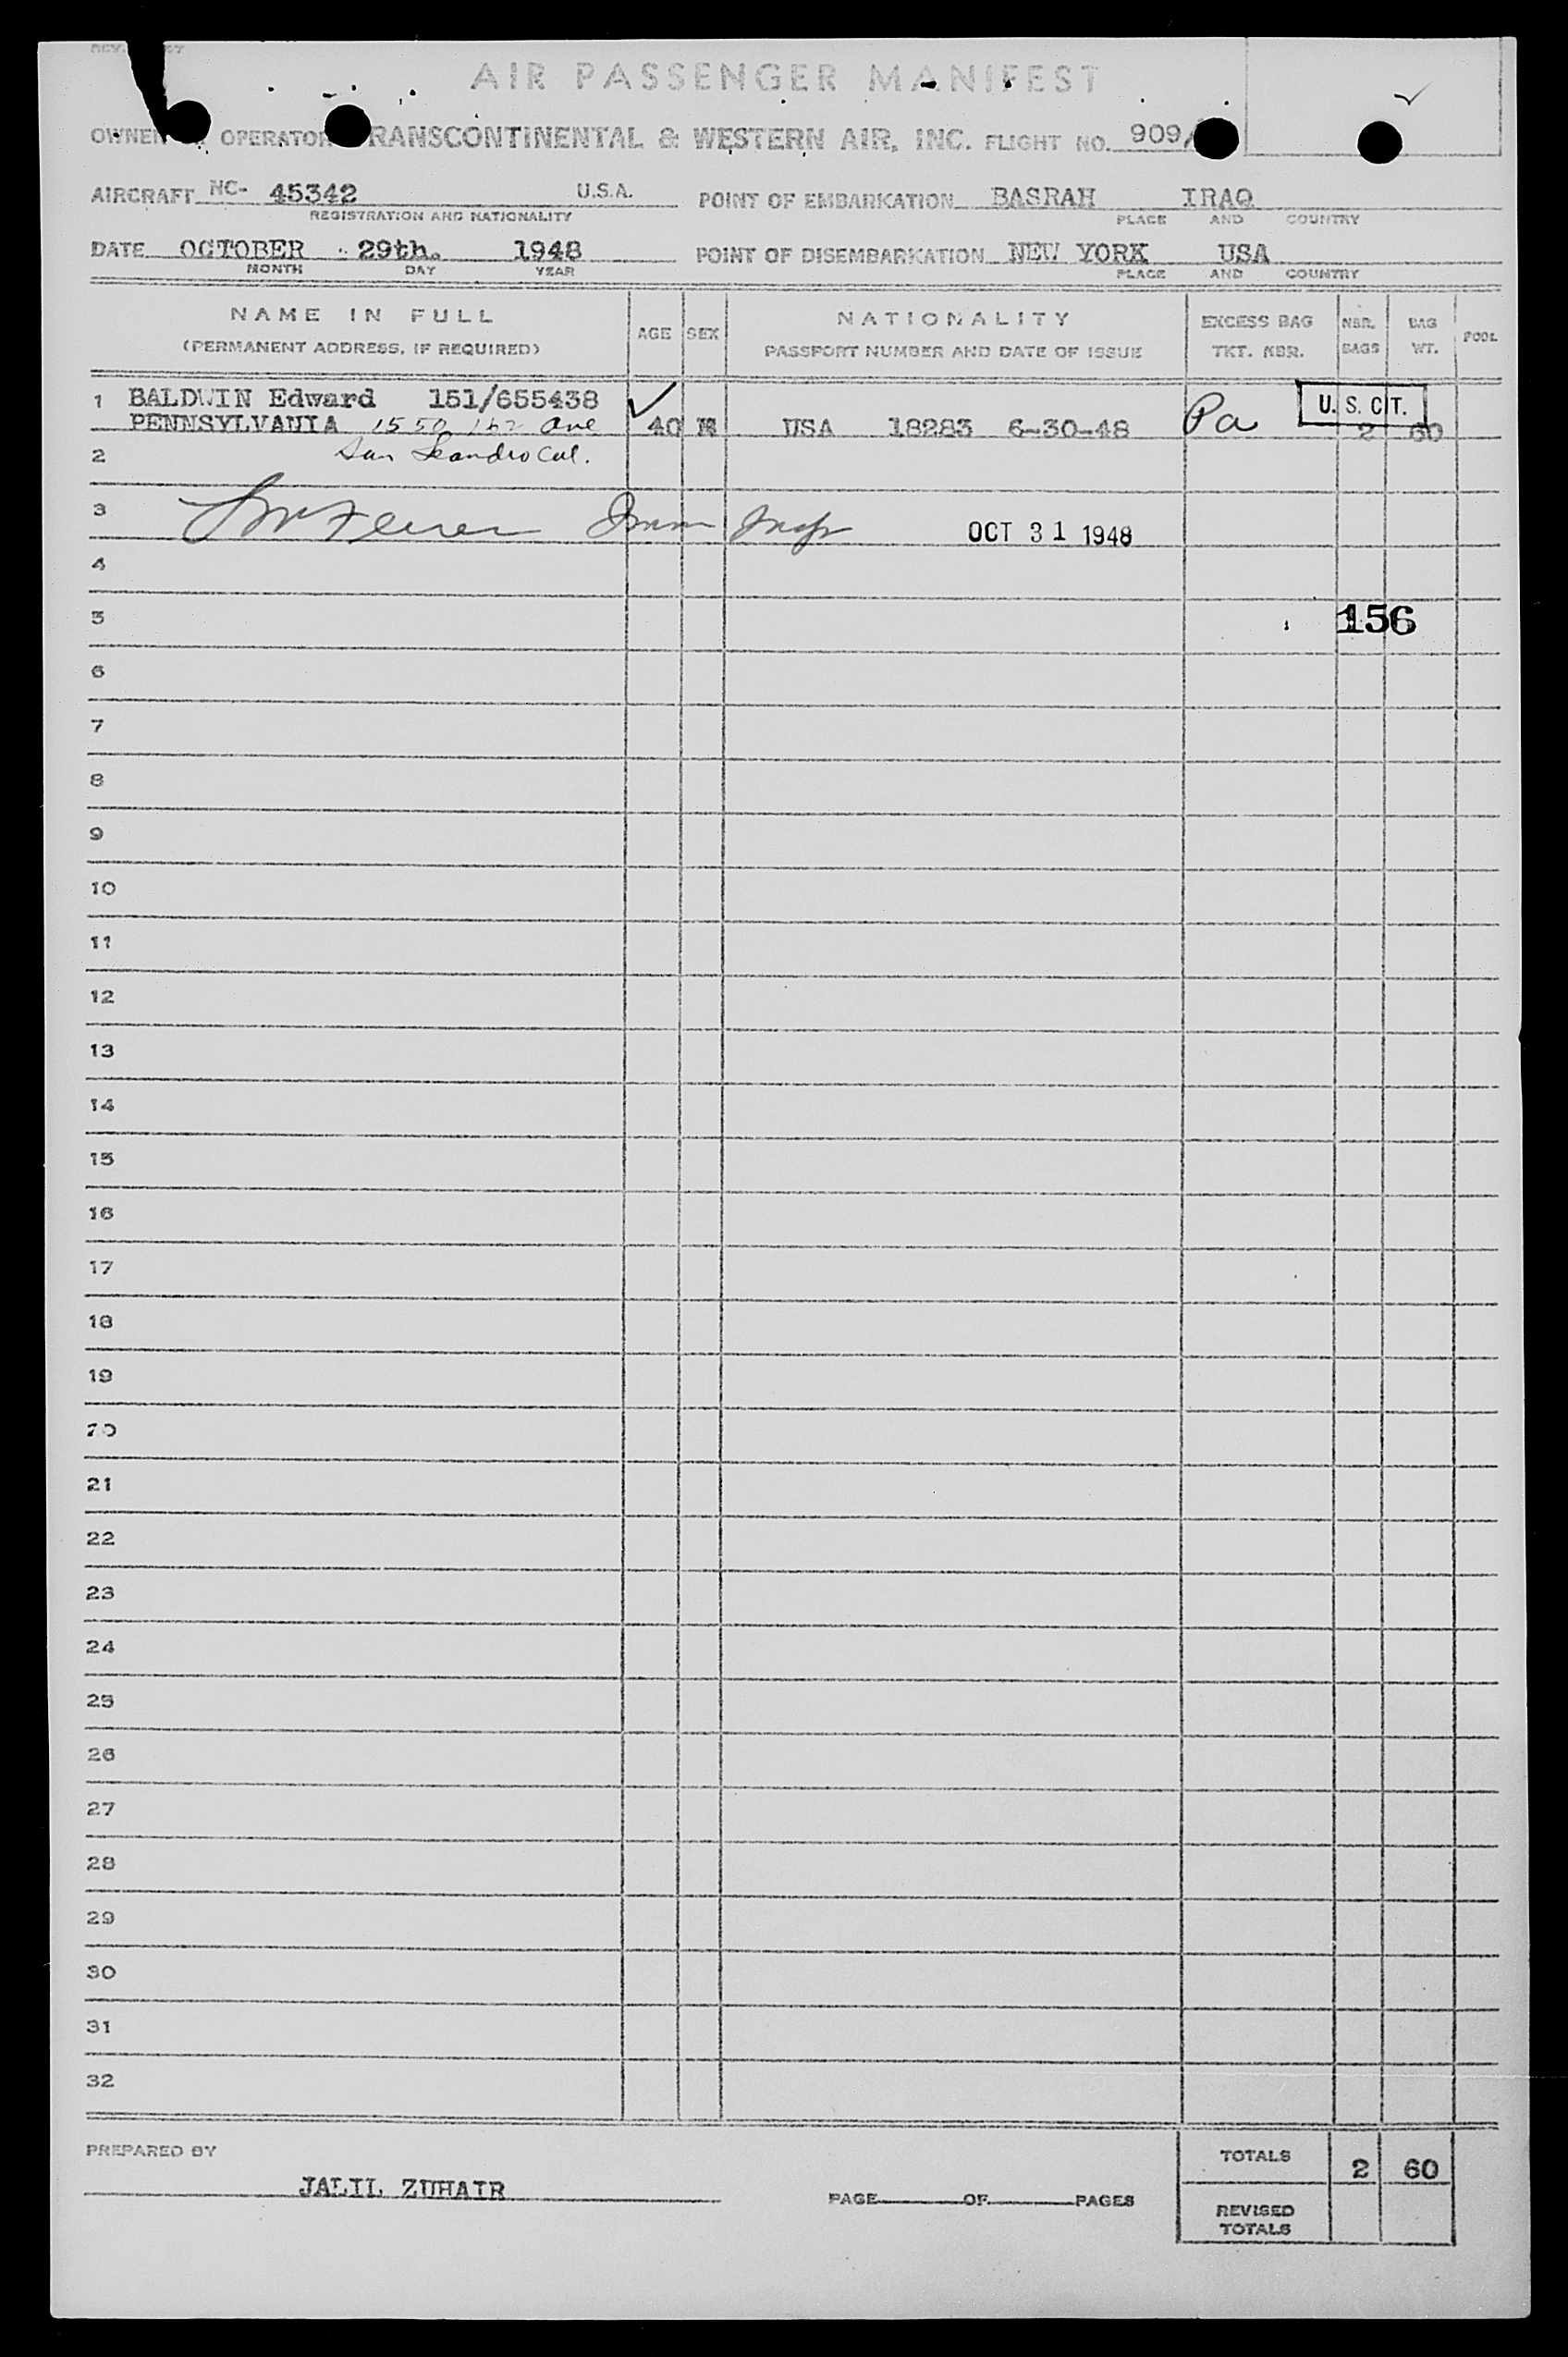 AIR PASSENGER MANIFEST
OPERATOR TRANSCONTINENTAL & WESTERN AIR, INC. FLIGHT NO. 909/
AIRCRAFT NC- 45342 U.S.A. POINT OF EMBARKATION BASRAH IRAQ
REGISTRATION AND NATIONALITY PLACE AND COUNTRY
DATE OCTOBER 29th. 1948 POINT OF DISEMBARKATION NEW YORK USA
MONTH DAY YEAR PLACE AND COUNTRY
NAME IN FULL AGE SEX NATIONALITY EXCESS BAG NBR. BAG POOL
(PERMANENT ADDRESS, IF REQUIRED) PASSPORT NUMBER AND DATE OF ISSUE TKT. NBR. BAGS WT.
1 BALDWIN Edward 151/655438 U.S.CIT.
PENNSYLVANIA 1550 162 Ave 40 M USA 18283 6-30-48 Pa 2 60
2 San Leandro Cal.
3 Imm Insp OCT 31 1948
4
5 156
6
7
8
9
10
11
12
13
14
15
16
17
18
19
20
21
22
23
24
25
26
27
28
29
30
31
32
PREPARED BY TOTALS 2 60
JALIL ZUHAIR PAGE OF PAGES
REVISED
TOTALS